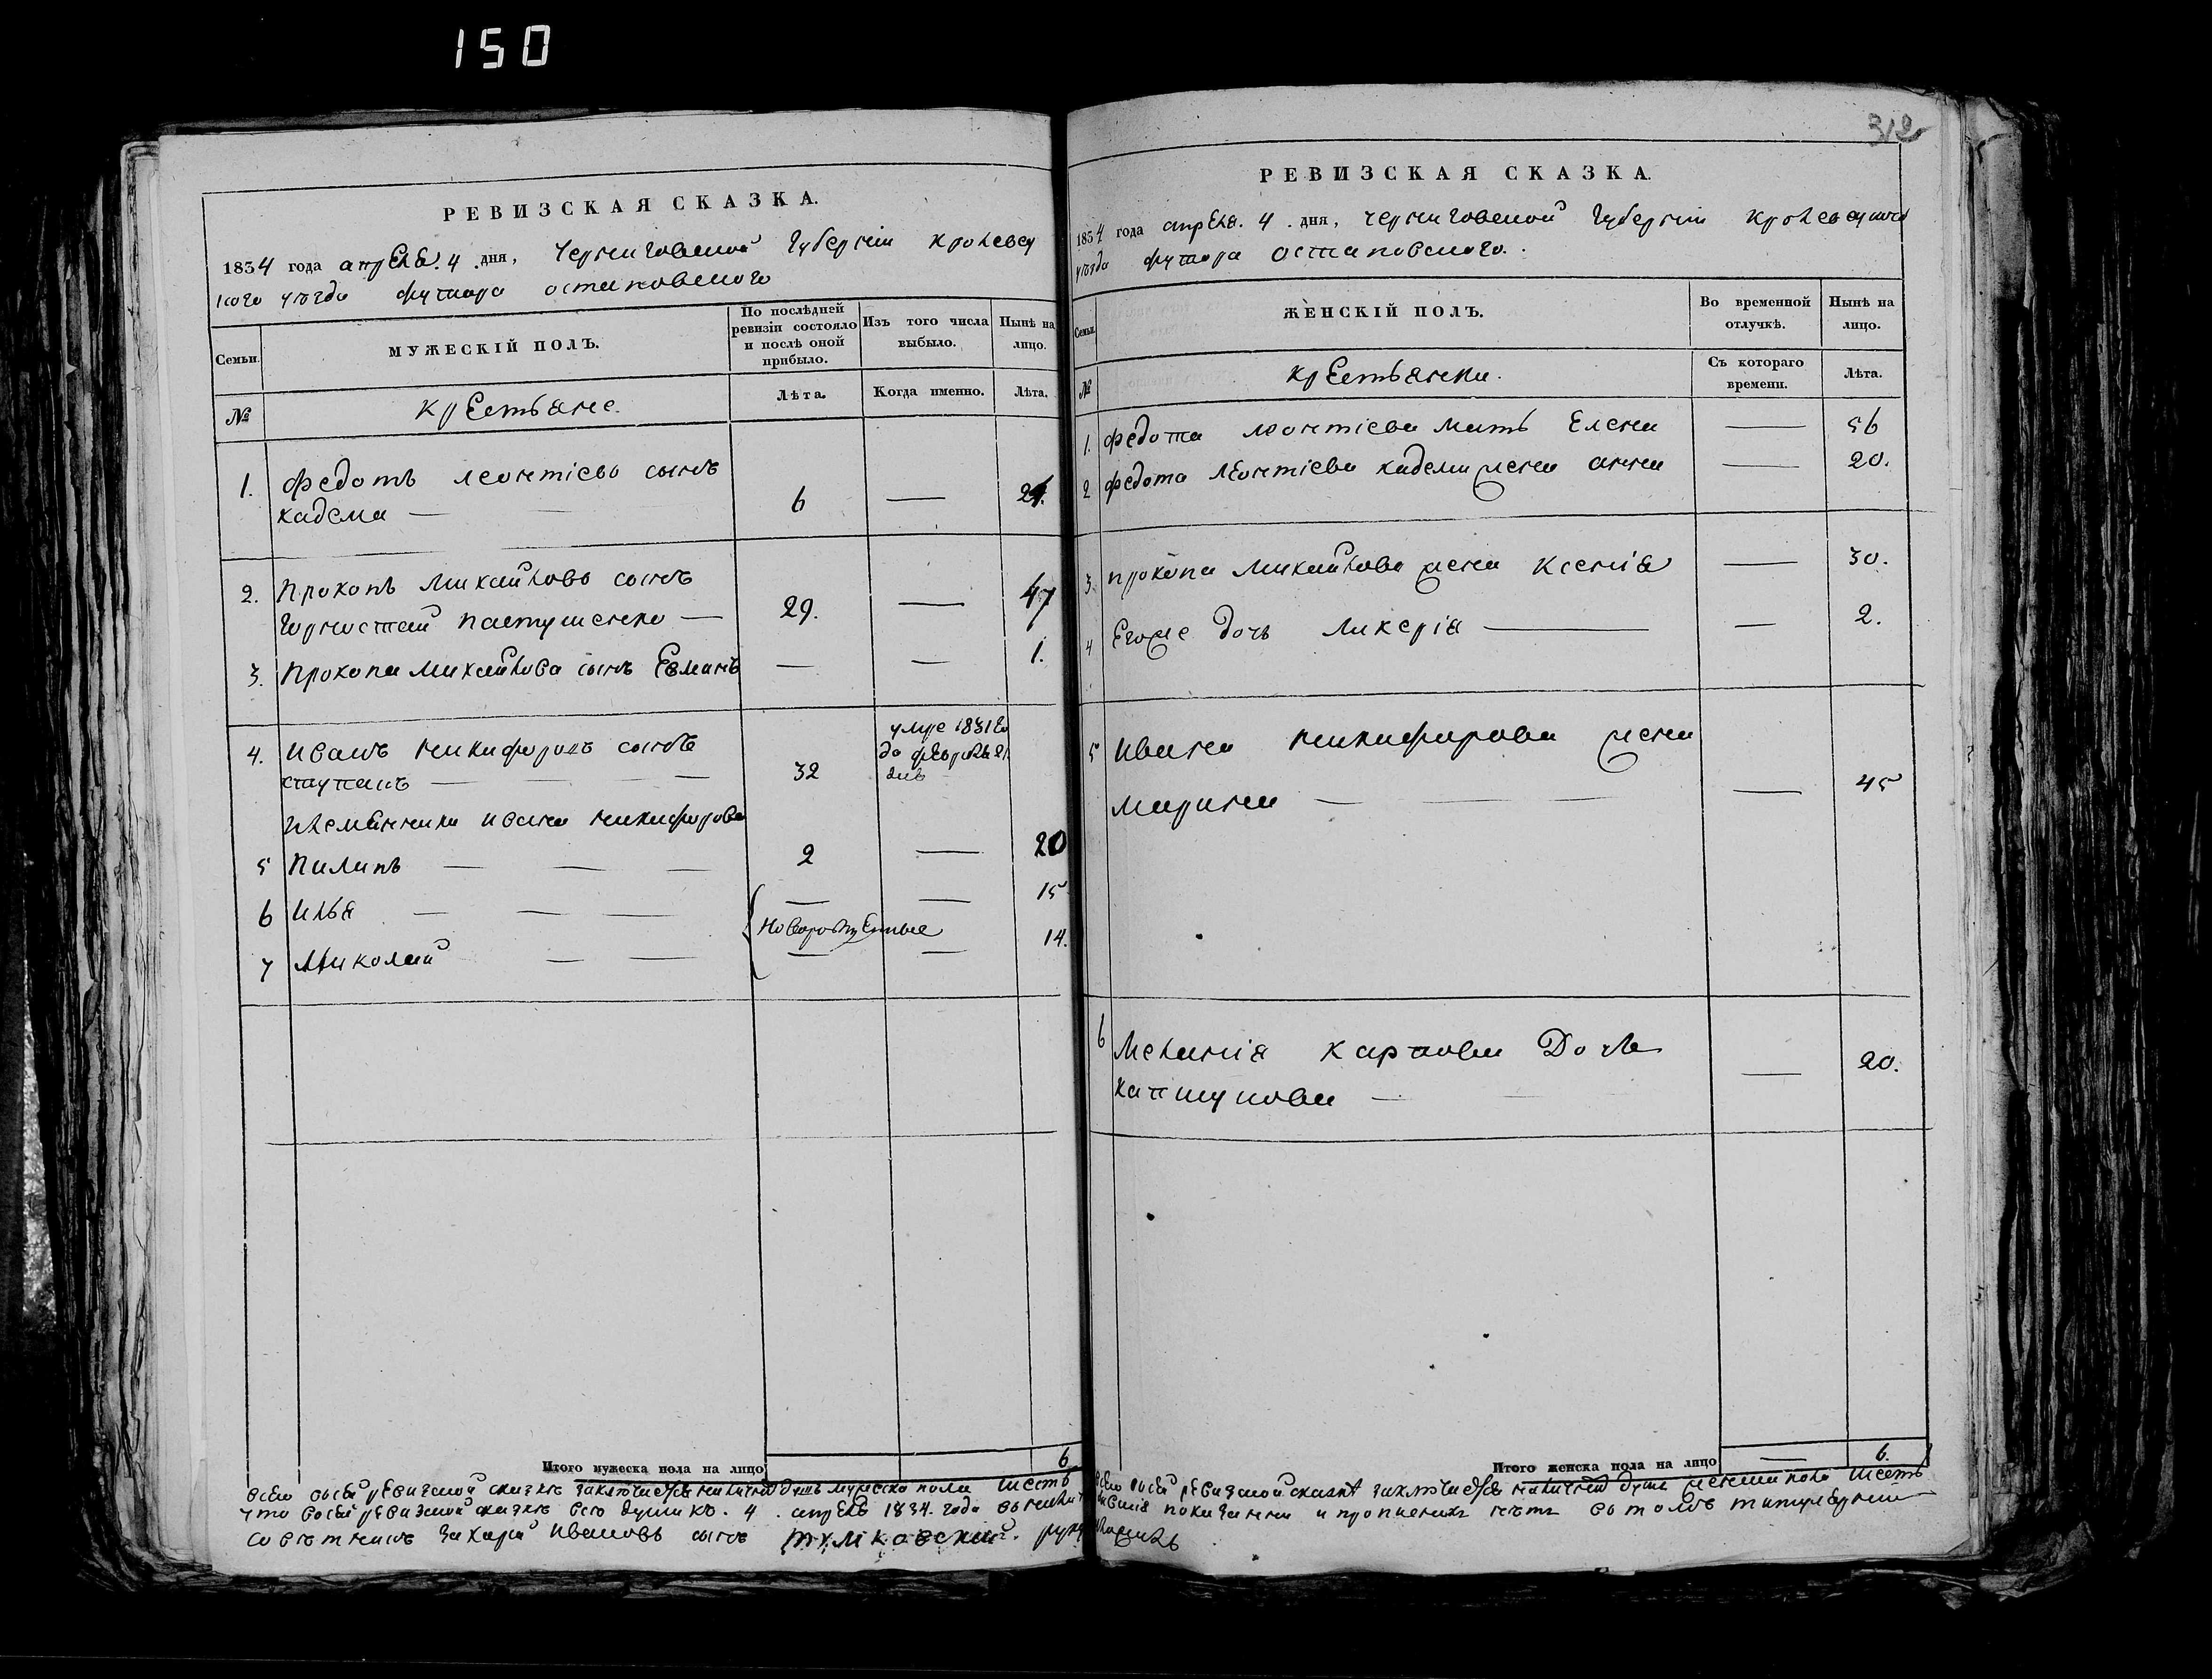 150
312
РЕВИЗСКАЯ СКАЗКА.
1834 года апреля. 4. дня, Черниговской Губернiи кролевец
кого уезда футора остаповского
Семьи.
МУЖЕСКIЙ ПОЛЪ.
По послѣдней ревизiи состояло и послѣ оной прибыло.
Изъ того числа выбыло.
Нынѣ на лицо.
№
крестьяне.
Лѣта.
Когда именно.
Лѣта.
1. федотъ леонтiевъ сынъ
кадема — 6 — 24.
2. Прокопъ Михайловъ сынъ
горностай пастушенко — 29. — 47
3. Прокопа Михайлова сынъ — — 1.
4. иванъ никифоровъ сынъ
— 32 умре 1831
племянники ивана никифорова
5 Пилипъ — 2 — 20
6 илья — — — 15
новорожденные
7 Николай — — — 14.
Итого мужеска пола на лицо 6
всего въ сей ревизской сказке заключается наличныхъ душъ мужеска пола шесть
что въ сей ревизской сказке все души къ. 4. апреля 1834. года
советникъ захарий ивановъ сынъ
РЕВИЗСКАЯ СКАЗКА.
1834 года апреля. 4. дня, черниговской Губернiи кролевецкого
уезда футора остаповского.
Семьи.
ЖЕНСКIЙ ПОЛЪ.
Во временной отлучкѣ.
Нынѣ на лицо.
№
крестьянки.
Съ котораго времени.
Лѣта.
1. федота леонтiева мать Елена — 56
2 федота леонтiева кадемы жена анна — 20.
3. прокопа Михайлова жена ксенiя — 30.
4 Егоже дочь ликерiя — — 2.
5 ивана никифорова жена
марина — — 45
6 Меланiя карпова Дочь
капшукова — — 20.
Итого женска пола на лицо — 6.
всего въ сей ревизской сказке заключается наличныхъ душъ женска пола шесть
показаны и прописныхъ нетъ въ томъ